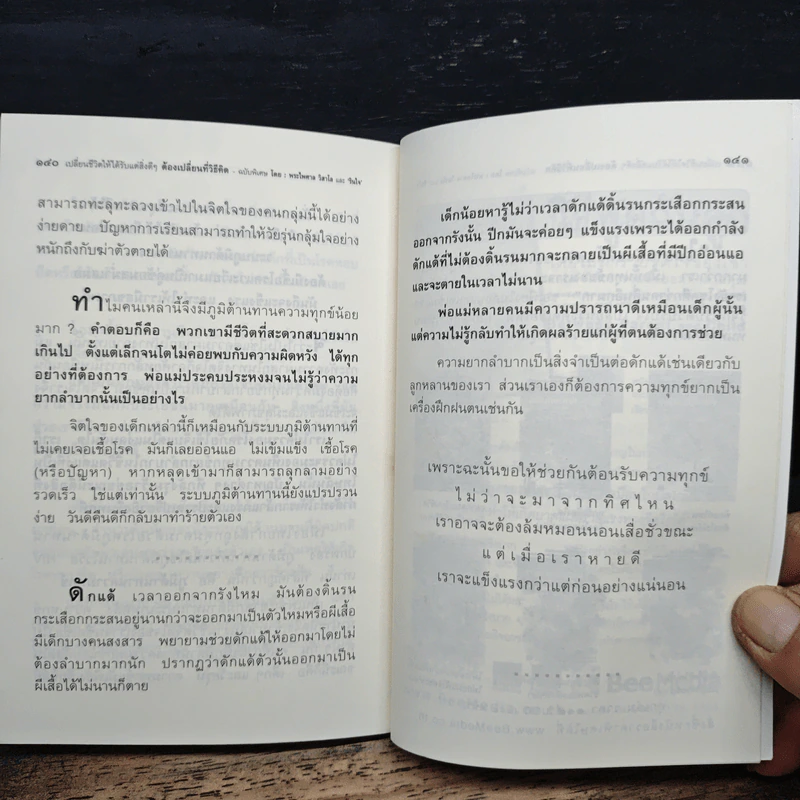 ๑๔๐ เปลี่ยนชีวิตให้ได้รับแต่สิ่งดีๆ ต้องเปลี่ยนที่วิธีคิด - ฉบับพิเศษ โดย : พระไพศาล วิสาโล และ 'รินใจ'
สามารถทะลุทะลวงเข้าไปในจิตใจของคนกลุ่มนี้ได้อย่าง
ง่ายดาย ปัญหาการเรียนสามารถทำให้วัยรุ่นกลุ้มใจอย่าง
หนักถึงกับฆ่าตัวตายได้
ทำไมคนเหล่านี้จึงมีภูมิต้านทานความทุกข์น้อย
มาก ? คำตอบก็คือ พวกเขามีชีวิตที่สะดวกสบายมาก
เกินไป ตั้งแต่เล็กจนโตไม่ค่อยพบกับความผิดหวัง ได้ทุก
อย่างที่ต้องการ พ่อแม่ประคบประหงมจนไม่รู้ว่าความ
ยากลำบากนั้นเป็นอย่างไร
จิตใจของเด็กเหล่านี้ก็เหมือนกับระบบภูมิต้านทานที่
ไม่เคยเจอเชื้อโรค มันก็เลยอ่อนแอ ไม่เข้มแข็ง เชื้อโรค
(หรือปัญหา) หากหลุดเข้ามาก็สามารถลุกลามอย่าง
รวดเร็ว ใช่แต่เท่านั้น ระบบภูมิต้านทานนี้ยังแปรปรวน
ง่าย วันดีคืนดีก็กลับมาทำร้ายตัวเอง
ดักแด้ เวลาออกจากรังไหม มันต้องดิ้นรน
กระเสือกกระสนอยู่นานกว่าจะออกมาเป็นตัวไหมหรือผีเสื้อ
มีเด็กบางคนสงสาร พยายามช่วยดักแด้ให้ออกมาโดยไม่
ต้องลำบากมากนัก ปรากฏว่าดักแด้ตัวนั้นออกมาเป็น
ผีเสื้อได้ไม่นานก็ตาย
๑๔๑
เด็กน้อยหารู้ไม่ว่าเวลาดักแด้ดิ้นรนกระเสือกกระสน
ออกจากรังนั้น ปีกมันจะค่อยๆ แข็งแรงเพราะได้ออกกำลัง
ดักแด้ที่ไม่ต้องดิ้นรนมากจะกลายเป็นผีเสื้อที่มีปีกอ่อนแอ
และจะตายในเวลาไม่นาน
พ่อแม่หลายคนมีความปรารถนาดีเหมือนเด็กผู้นั้น
แต่ความไม่รู้กลับทำให้เกิดผลร้ายแก่ผู้ที่ตนต้องการช่วย
ความยากลำบากเป็นสิ่งจำเป็นต่อดักแด้เช่นเดียวกับ
ลูกหลานของเรา ส่วนเราเองก็ต้องการความทุกข์ยากเป็น
เครื่องฝึกฝนตนเช่นกัน
เพราะฉะนั้นขอให้ช่วยกันต้อนรับความทุกข์
ไม่ว่าจะมาจากทิศไหน
เราอาจจะต้องล้มหมอนนอนเสื่อชั่วขณะ
แต่เมื่อเราหายดี
เราจะแข็งแรงกว่าแต่ก่อนอย่างแน่นอน